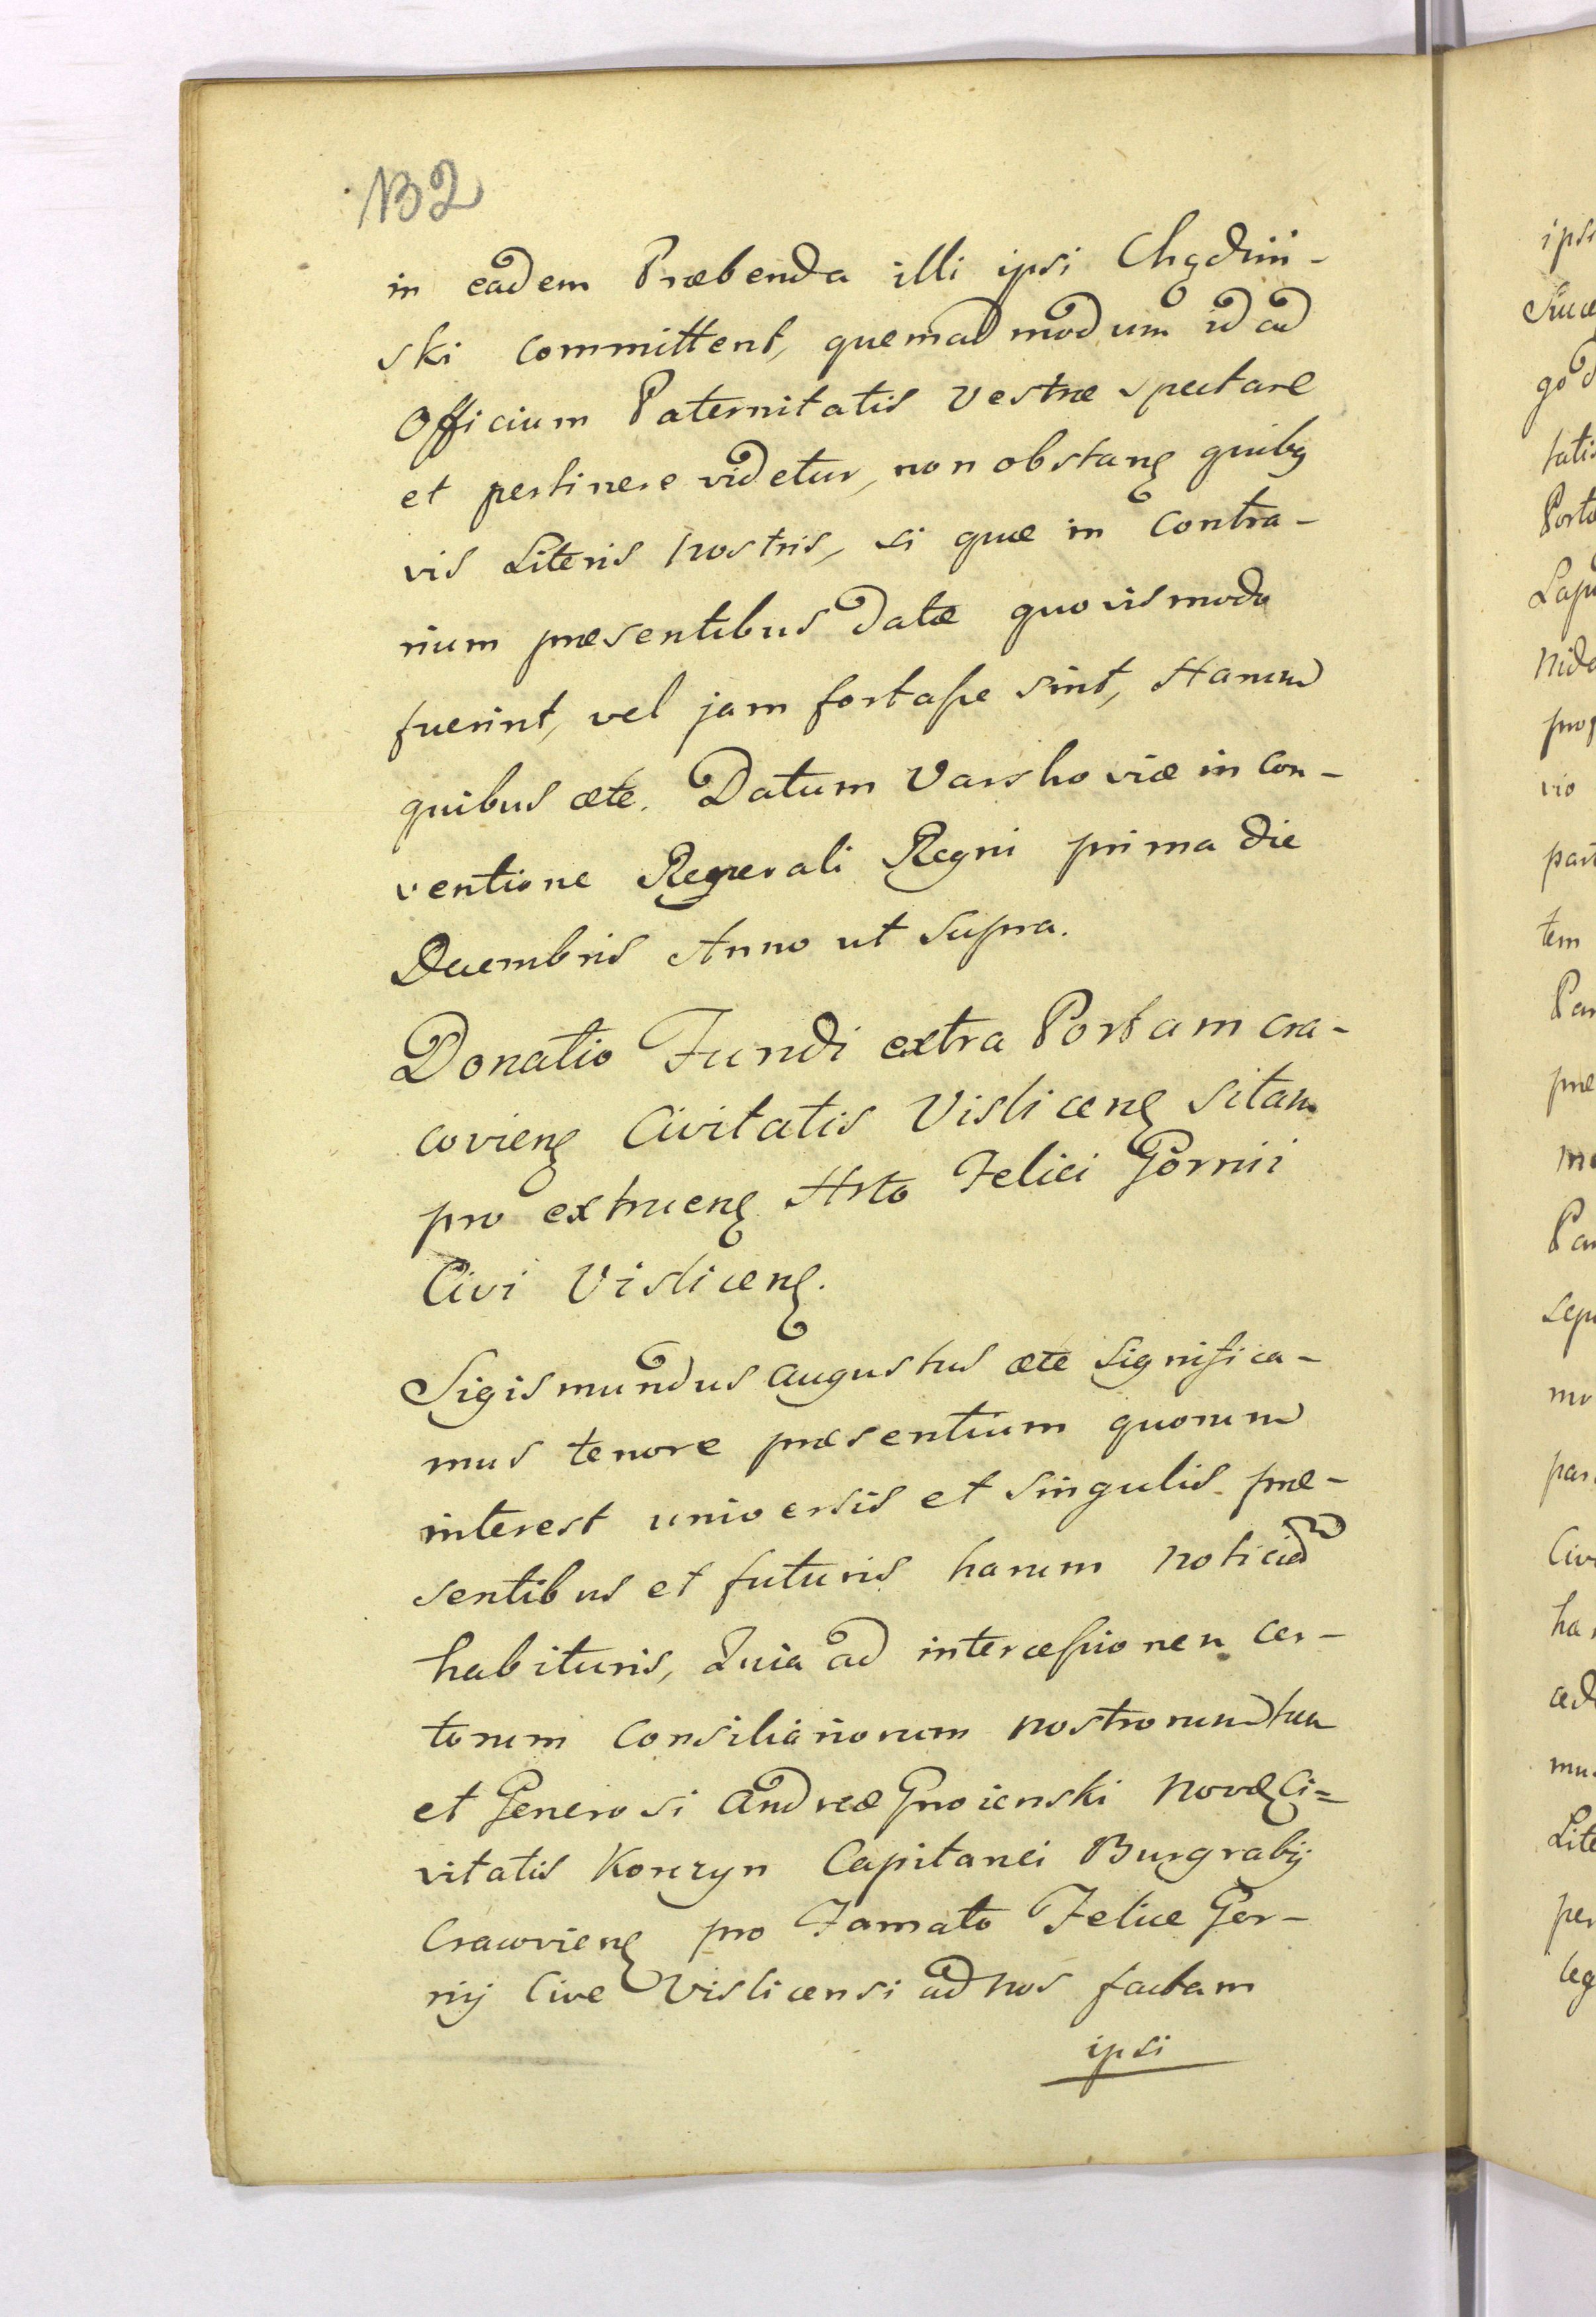 132
in eadem Præbenda illi ipsi Chądzin-
ski committent, quemadmodum id ad
Officium Paternitatis Vestræ spectare
et pertinere videtur, non obstanȩ quibꝫ
vis Literis Nostris, si quæ in Contra-
rium præsentibus datæ quovismodo
fuerint, vel jam fortaſse sint, Harum
quibus ætc. Datum Varshoviæ in Con-
ventione Regnerali Regni prima die
Decembris Anno ut Supra.
Donatio Fundi extra Portam Cra-
covienȩ Civitatis Vislicenȩ Sitam
pro extruenȩ Hrto Felici Górnii
Civi Vislicenȩ.
Sigismundus Augustus ætc Significa-
mus tenore præsentium quorum
interest universis et Singulis præ-
sentibus et futuris harum Noticiã
habituris, Quia ad interceſsionem Cer-
torum Consiliariorum Nostrorum tum
et Generosi Andreæ Gnoienski Novæ Ci=
vitatis Korczyn Capitanei Burgrabij
Cracovienȩ pro Famato Felice Gor-
nij Cive Vislicensi ad Nos factam
ipsi